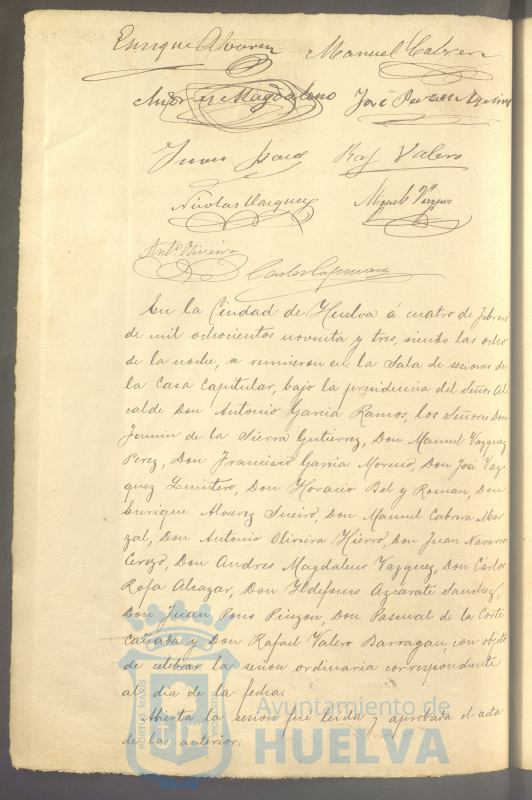 Enrique Alvarez Manuel Cabrera
Andres Magdaleno José
Rafl Valero
Nicolas Vazquez Miguel Vazquez
Antº Oliveira
En la Ciudad de Huelva á cuatro de Febrero
de mil ochocientos noventa y tres, siendo las ocho
de la noche, se reunieron en la Sala de sesiones de
la Casa Capitular, bajo la presidencia del Señor Al
calde Don Antonio Garcia Ramos, los Señores Don
Fermin de la Sierra Gutierrez, Don Manuel Vazquez
Perez, Don Francisco Garcia Moreno, Don José Vaz
quez Quintero, Don Horacio Bel y Roman, Don
Enrique Alvarez Sueiro, Don Manuel Cabrera Mar
zal, Don Antonio Oliveira Hierro, Don Juan Navarro
Cerezo, Don Andres Magdaleno Vazquez, Don Cárlos
Rofa Alcazar, Don Ildefonso Azcarate Sanchez,
Don Juan Pons Pinzon, Don Pascual de la Corte
Cañada y Don Rafael Valero Barragan, con objeto
de celebrar la sesion ordinaria correspondiente
al dia de la fecha.
Abierta la sesion fué leida y aprobada el acta
de la anterior.
Ayuntamiento de
HUELVA
PORTUS MARIS